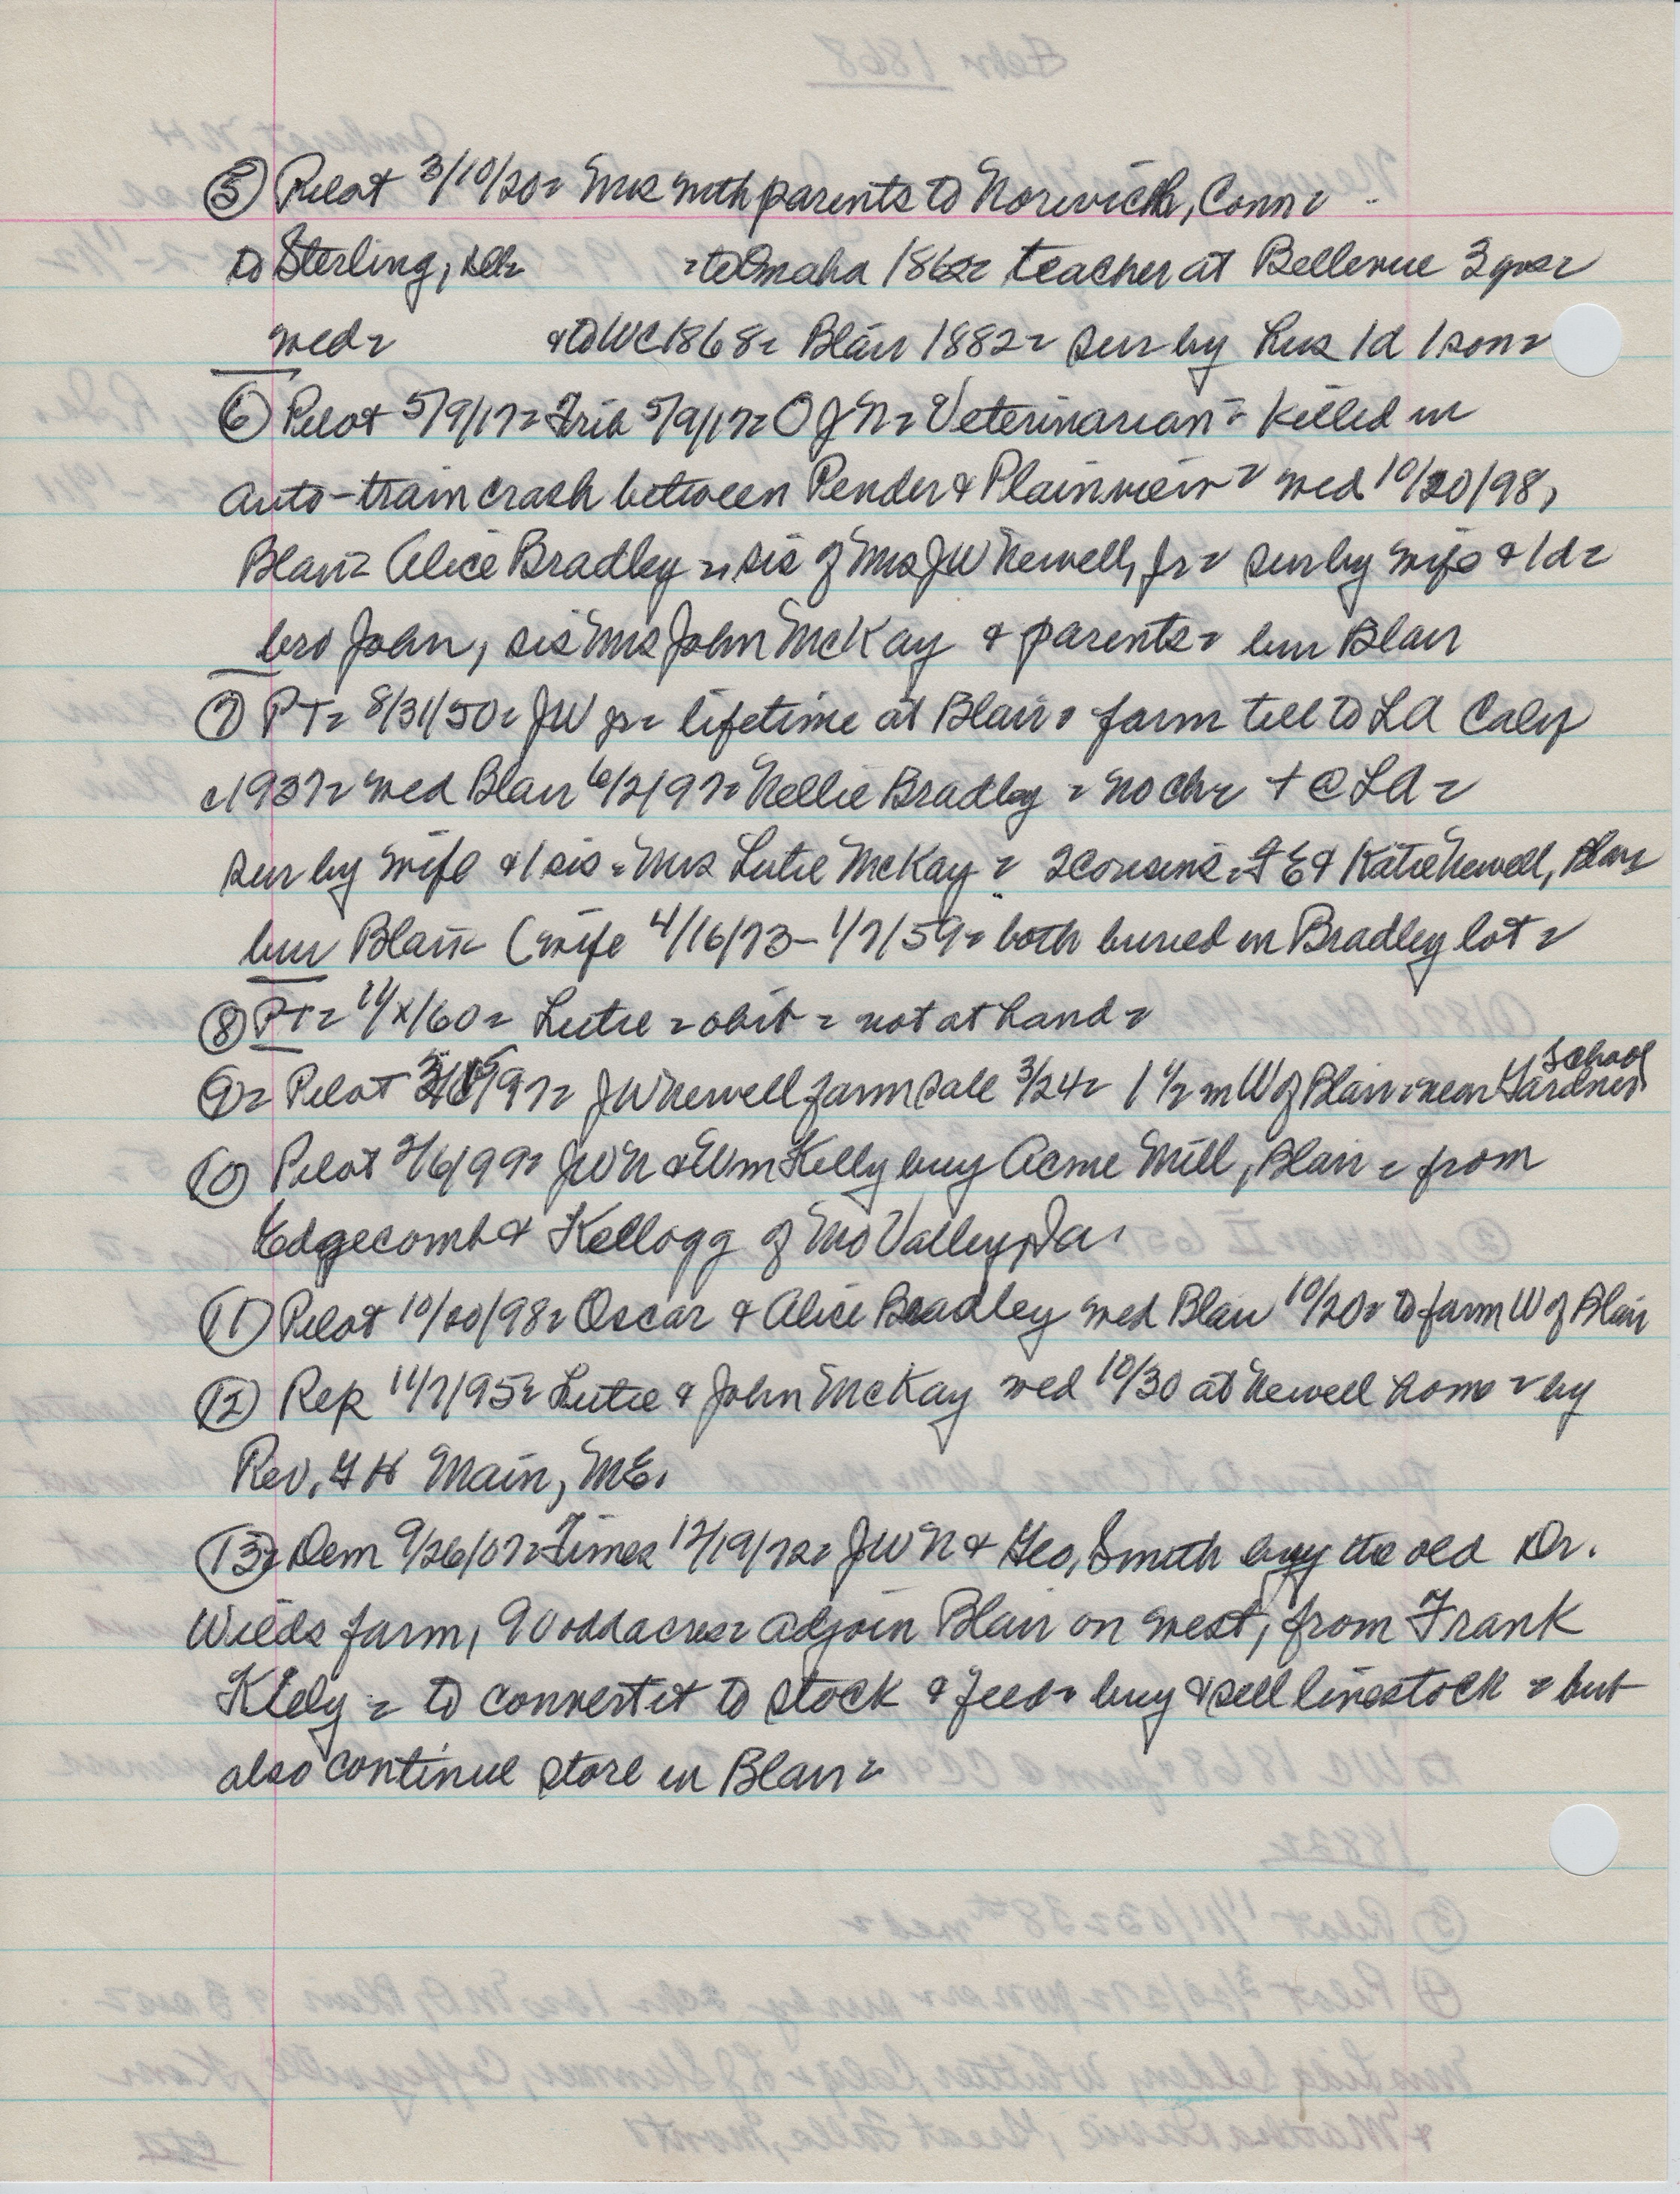 (5) Pilot 3/10/20= Mrs with parents to Norwich, Conn=
to Sterling, Ills= =to Omaha 1862= teacher at Bellevue 3 yrs=
wed= & to WC 1868= Blair 1882= sur by hus 1d 1 son=
(6) Pilot 5/9/17= Trib 5/9/17= O J N= Veterinarian= killed in
auto-train crash between Pender & Plainview= wed 10/20/98,
Blair= Alice Bradley =sis of Mrs JW Newell, Jr= sur by wife & 1d=
bro John, sis Mrs John McKay & parents= bur Blair
(7) PT= 8/31/50= JW jr= lifetime at Blair= farm till to LA Calif
c1937= wed Blair 6/2/97= Nellie Bradley = no ch= + @ LA=
sur by wife & 1 sis= Mrs Lutie McKay= 2 cousins= F E & Katie Newell, Blair
bur Blair= (wife 4/16/73-1/7/59= both buried in Bradley lot=
(8) PT= 11/x/60= Lutie = obit = not at hand=
(9)= Pilot 97= JW Newell farm sale 3/24= 1 1/2 m W of Blair= near Gardner School
(10) Pilot 2/6/99= JWN & Wm Kelly buy Acme Mill, Blair = from
Edgecomb & Kellogg of Mo Valley, Ia.
(11) Pilot 10/20/98= Oscar & Alice Bradley wed Blair 10/20= to farm W of Blair
(12) Rep 11/7/95= Lutie & John McKay wed 10/30 at Newell home = by
Rev. G H Main, ME.
(13)= Dem 9/26/07= Times 12/19/72= JWN & Geo, Smith buy the old Dr.
farm, 90 odd acres= adjoin Blair on west, from Frank
= to convert it to stock & feed= buy & sell livestock = but
also continue store in Blair=